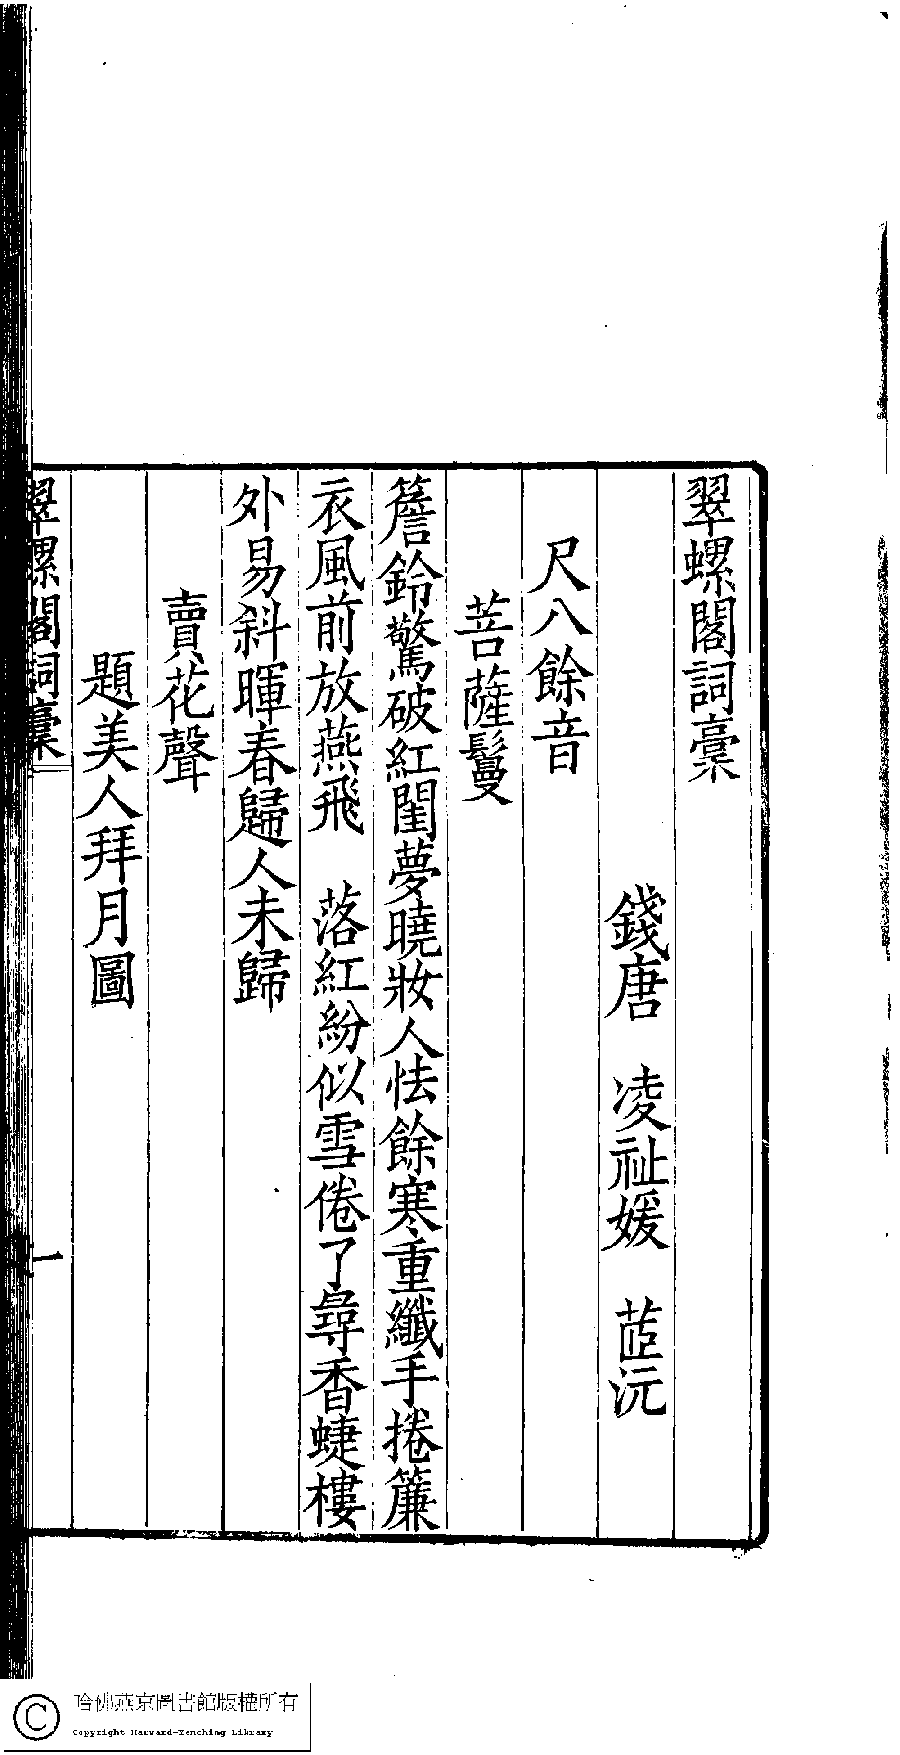 翠螺閣詞稾
錢唐　凌祉媛　茝沅
尺八餘音
菩薩鬘
簷鈴驚破紅閨夢曉妝人怯餘寒重纖手捲簾
衣風前放燕飛　落紅紛似雪倦了尋香蜨樓
外易斜暉春歸人未歸
賣花聲
題美人拜月圖
翠螺閣詞稾
一
哈佛燕京圖書館版權所有
Copyright Harvard-Yenching Library